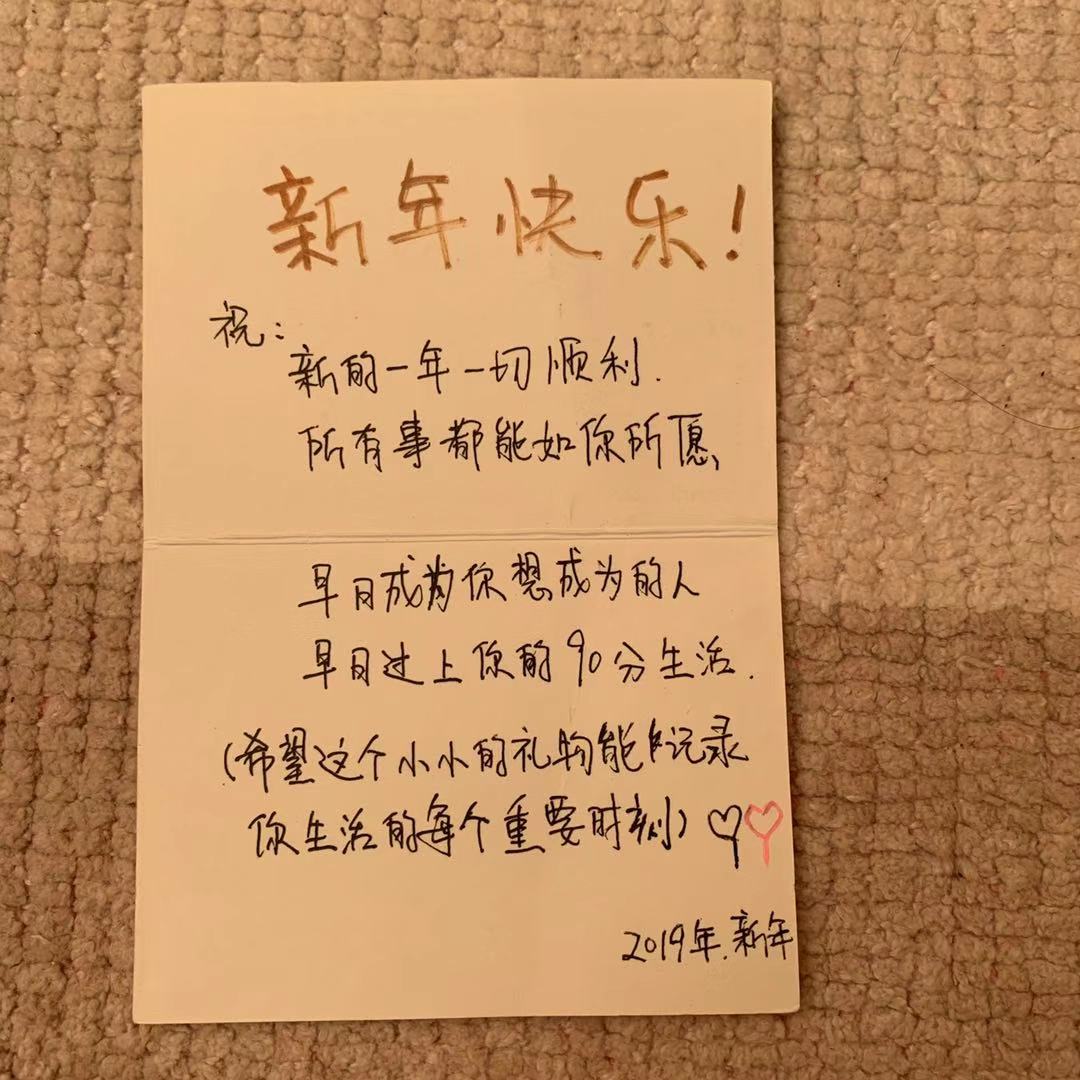 新年快乐!
祝:
新的一年一切顺利.
所有事都能如你所愿,
早日成为你想成为的人
早日过上你的90分生活.
(希望这个小小的礼物能记录
你生活的每个重要时刻)
2019年.新年